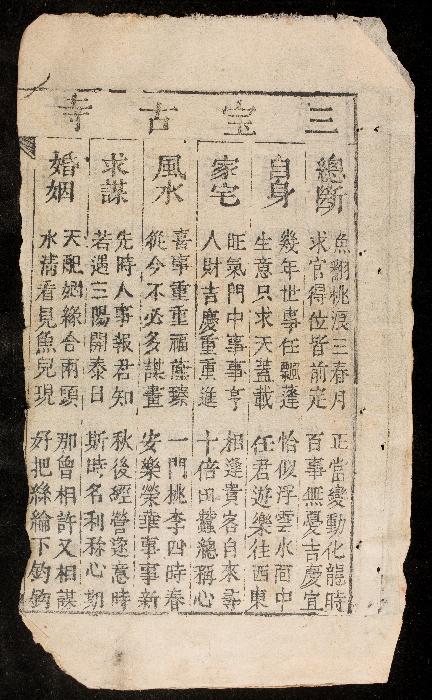 三宝古寺
總斷
魚翻桃浪三春月 正當變動化龍時
求官得位皆前定 百事無憂吉慶宜
自身
幾年世事任飄逢 恰似浮雲水面中
生意只求天蓋載 任君遊樂往西東
家宅
旺氣門中事事亨 相逢貴客自來尋
人財吉慶重重進 十倍田蠶總稱心
風水
喜事重重福蔭臻 一門桃李四時春
從今不必多謀畫 安樂榮華事事新
求謀
先時人事報君知 秋後經營遂意時
若遇三陽開泰日 斯時名利称心期
婚姻
天配姻緣合兩頭 那曾相許又相謀
水清看見魚兒現 好把絲綸下釣鈎